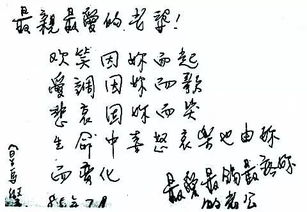 最親最愛的老婆！
欢笑因妳而起
愛調因妳而歌
悲哀因妳而哭
生命中喜怒哀樂也由妳
而變化
最愛最能最疼妳
的老公